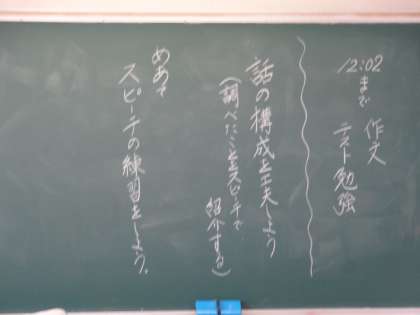 12:02まで
作文
テスト勉強
話の構成を工夫しよう
（調べたことをスピーチで
紹介する）
めあて
スピーチの練習をしよう。